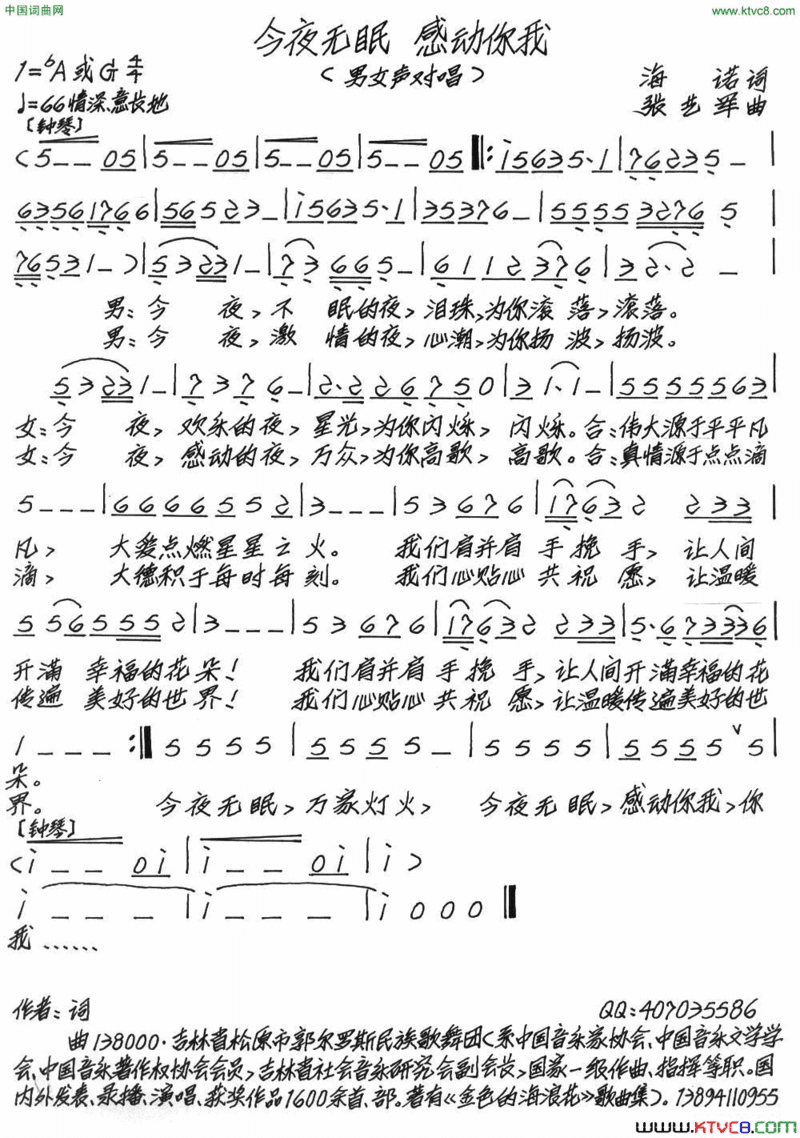 中国词曲网
www.ktvc8.com
今夜无眠 感动你我
(男女声对唱)
1=♭A或G 4/4
海 诺 词
♩=66 情深、意长地
张艺军 曲
[钟琴]
(5 - - 05 | 5 - - 05 | 5 - - 05 | 5 - - 05 ‖: i 5 6 3 5·1 | 7 6 2 3 5 - |
6 3 5 6 1 7 6 6 | 5 6 5 2 3 - | i 5 6 3 5·1 | 3 5 3 7 6 - | 5 5 5 5 3 2 7 6 5 |
7 6 5 3 1 -) | 5 3 2 3 1 - | 7 3 6 6 5 - | 6 1 1 2 3 7 6 | 3 2·2 - |
男:今 夜,不 眠的夜,泪珠,为你滚 落,滚落。
男:今 夜,激 情的夜,心潮,为你扬 波,扬波。
5 3 2 3 1 - | 7 3 7 6 - | 2·2 2 6 7 5 0 | 3 1·1 - | 5 5 5 5 5 5 6 3 |
女:今 夜,欢乐的夜,星光,为你闪烁,闪烁。合:伟大源于平平凡
女:今 夜,感动的夜,万众,为你高歌,高歌。合:真情源于点点滴
5 - - - | 6 6 6 6 5 5 2 | 3 - - - | 5 3 6 7 6 | 1 7 6 3 2 2 3 3 |
凡, 大爱点燃星星之火。 我们肩并肩 手挽 手,让人间
滴, 大德积于每时每刻。 我们心贴心 共祝 愿,让温暖
5 5 6 5 5 5 2 | 3 - - - | 5 3 6 7 6 | 1 7 6 3 2 2 3 3 | 5·6 7 3 3 3 6 |
开满 幸福的花 朵! 我们肩并肩 手挽 手,让人间开满幸福的花
传遍 美好的世 界! 我们心贴心 共祝 愿,让温暖传遍美好的世
1 - - - :‖ 5 5 5 5 | 5 5 5 - | 5 5 5 5 | 5 5 5 5 ∨ 5 |
朵。
界。 今夜无眠,万家灯火, 今夜无眠,感动你我,你
[钟琴]
(i - - 0i | i - - 0i | i | i)
i - - - | i - - - | i 0 0 0 ‖
我……
作者:词 QQ:407035586
曲 138000·吉林省松原市郭尔罗斯民族歌舞团(系中国音乐家协会、中国音乐文学学
会、中国音乐著作权协会会员,吉林省社会音乐研究会副会长,国家一级作曲、指挥等职。国
内外发表、录播、演唱、获奖作品1600余首、部。著有《金色的海浪花》歌曲集)。13894110955
www.KTVC8.com